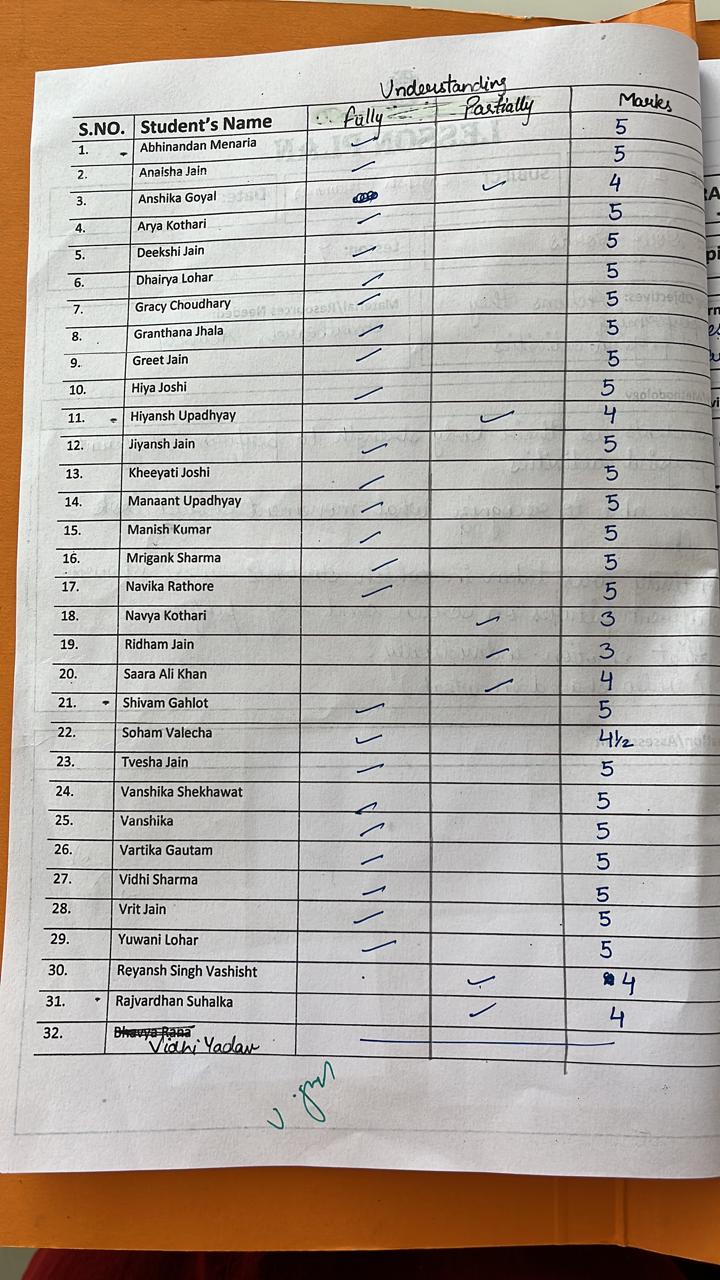 Understanding
S.NO. Student's Name fully Partially Marks
1. Abhinandan Menaria ✓ 5
2. Anaisha Jain ✓ 5
3. Anshika Goyal ✓ 4
4. Arya Kothari ✓ 5
5. Deekshi Jain ✓ 5
6. Dhairya Lohar ✓ 5
7. Gracy Choudhary ✓ 5
8. Granthana Jhala ✓ 5
9. Greet Jain ✓ 5
10. Hiya Joshi ✓ 5
11. Hiyansh Upadhyay ✓ 4
12. Jiyansh Jain ✓ 5
13. Kheeyati Joshi ✓ 5
14. Manaant Upadhyay ✓ 5
15. Manish Kumar ✓ 5
16. Mrigank Sharma ✓ 5
17. Navika Rathore ✓ 5
18. Navya Kothari ✓ 3
19. Ridham Jain ✓ 3
20. Saara Ali Khan ✓ 4
21. Shivam Gahlot ✓ 5
22. Soham Valecha ✓ 4½
23. Tvesha Jain ✓ 5
24. Vanshika Shekhawat ✓ 5
25. Vanshika ✓ 5
26. Vartika Gautam ✓ 5
27. Vidhi Sharma ✓ 5
28. Vrit Jain ✓ 5
29. Yuwani Lohar ✓ 5
30. Reyansh Singh Vashisht ✓ 4
31. Rajvardhan Suhalka ✓ 4
32. Bhavya Rana
Vidhi Yadav